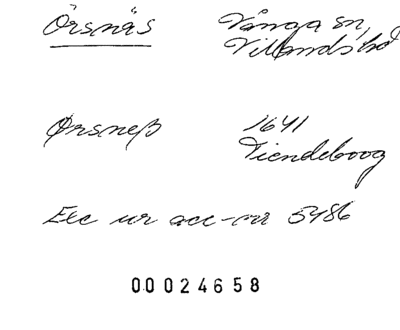 Örsnäs Vånga sn,
Villands hd
Ørsneß 1641
Tiendeboog
Exc ur acc-nr 5486
00024658